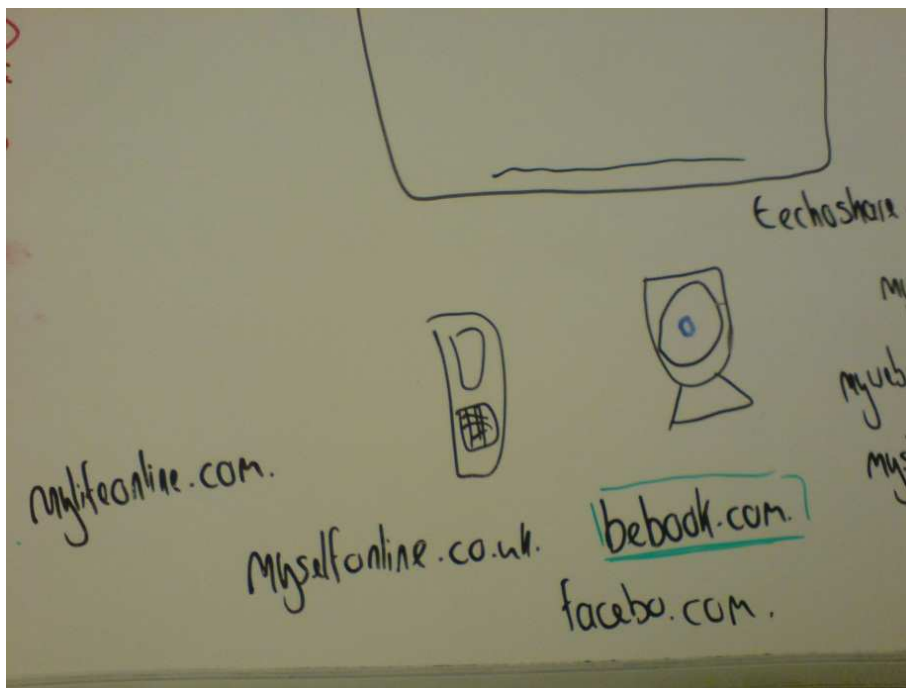 techoshare
mylifeonline.com.
myselfonline.co.uk.
bebook.com.
facebo.com.